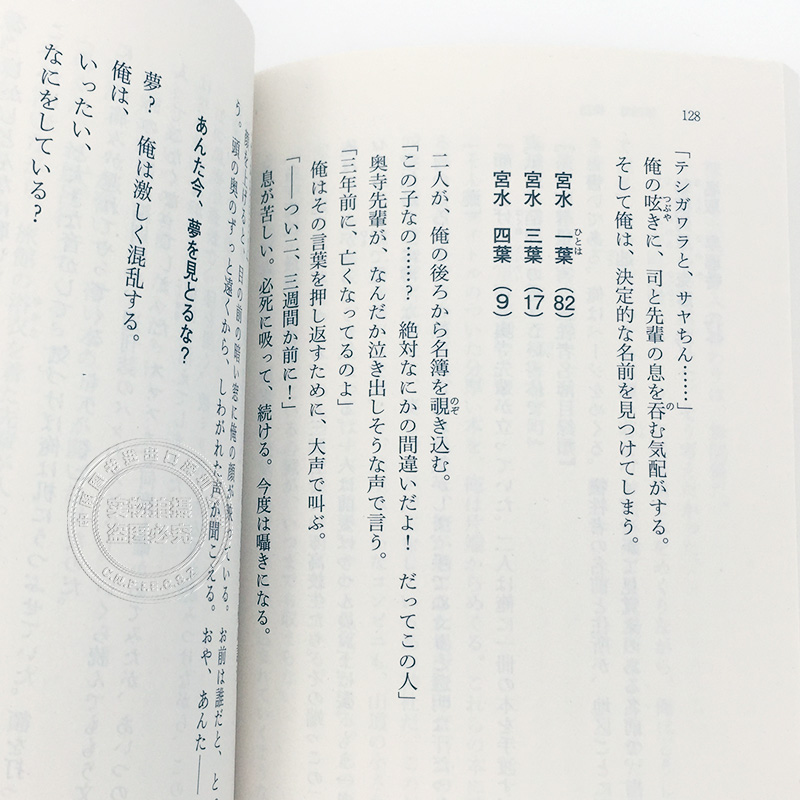 128
「テシガワラと、サヤちん……」
俺の呟きに、司と先輩の息を呑む気配がする。
つぶや
の
そして俺は、決定的な名前を見つけてしまう。
宮水　一葉　(82)
ひとは
宮水　三葉　(17)
宮水　四葉　(9)
二人が、俺の後ろから名簿を覗き込む。
のぞ
「この子なの……？　絶対なにかの間違いだよ！　だってこの人」
奥寺先輩が、なんだか泣き出しそうな声で言う。
「三年前に、亡くなってるのよ」
俺はその言葉を押し返すために、大声で叫ぶ。
「――つい二、三週間か前に！」
息が苦しい。必死に吸って、続ける。今度は囁きになる。
顔を上げると、目の前の暗い窓に俺の顔が映っている。お前は誰だと、と
う。頭の奥のずっと遠くから、しわがれた声が聞こえる。おや、あんた――
あんた今、夢を見とるな？
夢？　俺は激しく混乱する。
俺は、
いったい、
なにをしている？